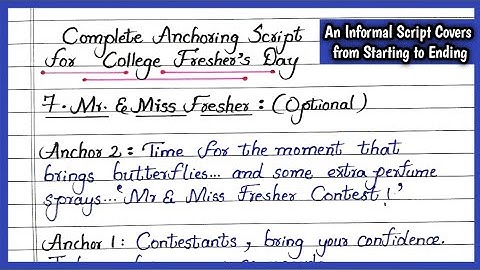 Complete Anchoring Script
for College Fresher's Day
An Informal Script Covers
from Starting to Ending
7. Mr. & Miss Fresher : (Optional)
Anchor 2 : Time for the moment that
brings butterflies... and some extra perfume
sprays... 'Mr & Miss Fresher Contest!'
Anchor 1 : Contestants, bring your confidence.